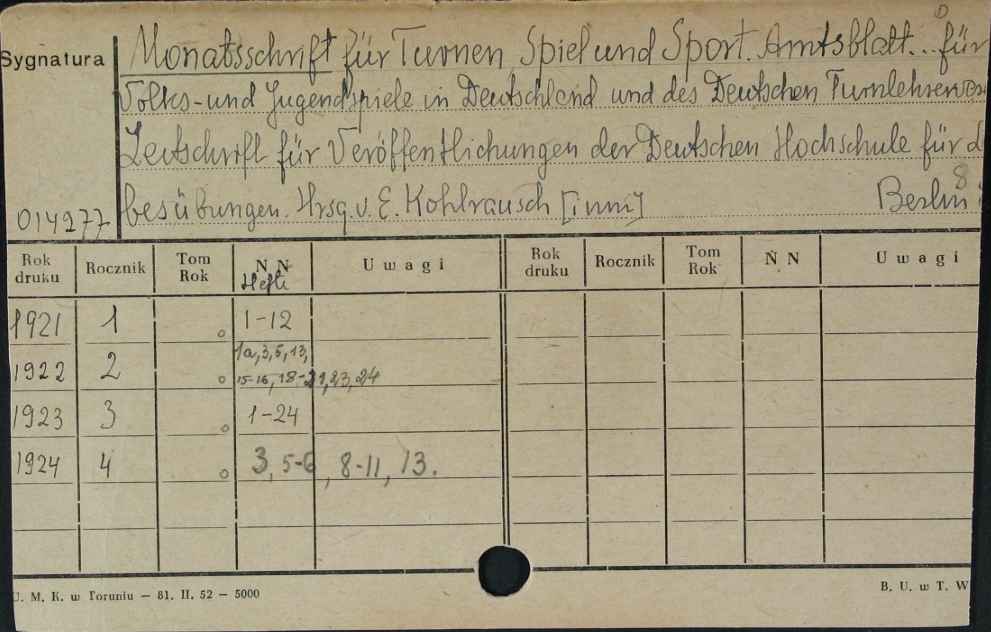 Sygnatura
Monatsschrift für Turnen Spiel und Sport. Amtsblatt... für
Volks- und Jugendspiele in Deutschland und des Deutschen Turnlehrerver
Zeitschrift für Veröffentlichungen der Deutschen Hochschule für d
besübungen. Hrsg. v. E. Kohlrausch [i inni] Berlin 8
014977
Rok druku Rocznik Tom Rok N N Hefti Uwagi Rok druku Rocznik Tom Rok N N Uwagi
1921 1 1-12
1a, 3, 5, 13,
1922 2 15-16, 18-21, 23, 24
1923 3 1-24
1924 4 3, 5-6, 8-11, 13.
U. M. K. w Toruniu — 81. II. 52 — 5000 B. U. w T. W